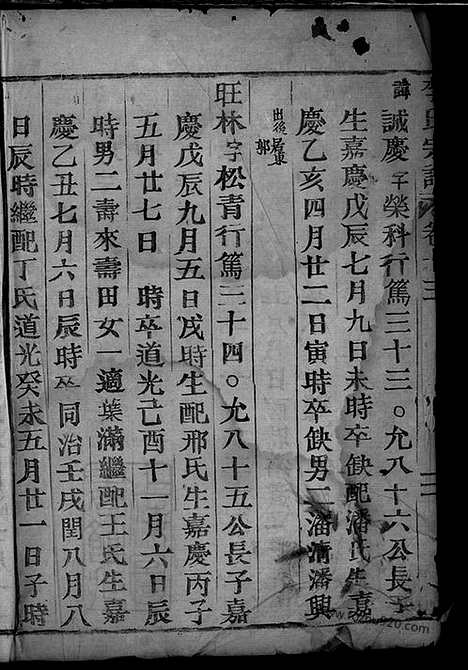 李氏宗譜 卷十三
諱誠慶字榮科行篤三十三○允八十六公長子
生嘉慶戊辰七月九日未時卒缺配潘氏生嘉
慶乙亥四月廿二日寅時卒缺男二潘清潘興
出後 郭
旺林字松青行篤三十四○允八十五公長子嘉
慶戊辰九月五日戌時生配邢氏生嘉慶丙子
五月廿七日 時卒道光己酉十一月六日辰
時男二壽來壽田女一適葉滿繼配王氏生嘉
慶乙丑七月六日辰時卒同治壬戌閏八月八
日辰時繼配丁氏道光癸未五月廿一日子時